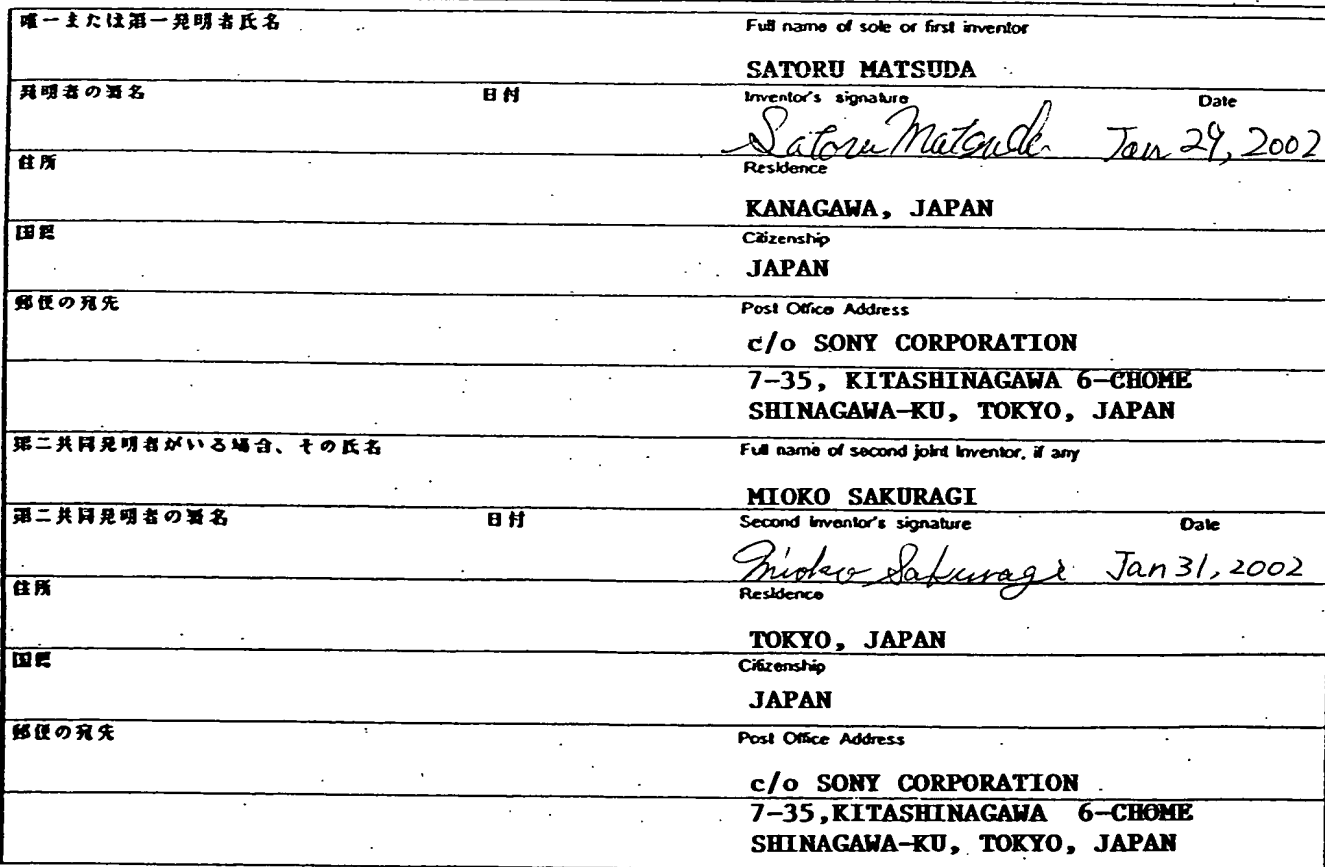 唯一または第一発明者氏名 Full name of sole or first inventor
SATORU MATSUDA
発明者の署名 日付 Inventor's signature Date
Satoru Matsuda Jan 29, 2002
住所 Residence
KANAGAWA, JAPAN
国籍 Citizenship
JAPAN
郵便の宛先 Post Office Address
c/o SONY CORPORATION
7-35, KITASHINAGAWA 6-CHOME
SHINAGAWA-KU, TOKYO, JAPAN
第二共同発明者がいる場合、その氏名 Full name of second joint Inventor, if any
MIOKO SAKURAGI
第二共同発明者の署名 日付 Second Inventor's signature Date
Mioko Sakuragi Jan 31, 2002
住所 Residence
TOKYO, JAPAN
国籍 Citizenship
JAPAN
郵便の宛先 Post Office Address
c/o SONY CORPORATION
7-35,KITASHINAGAWA 6-CHOME
SHINAGAWA-KU, TOKYO, JAPAN